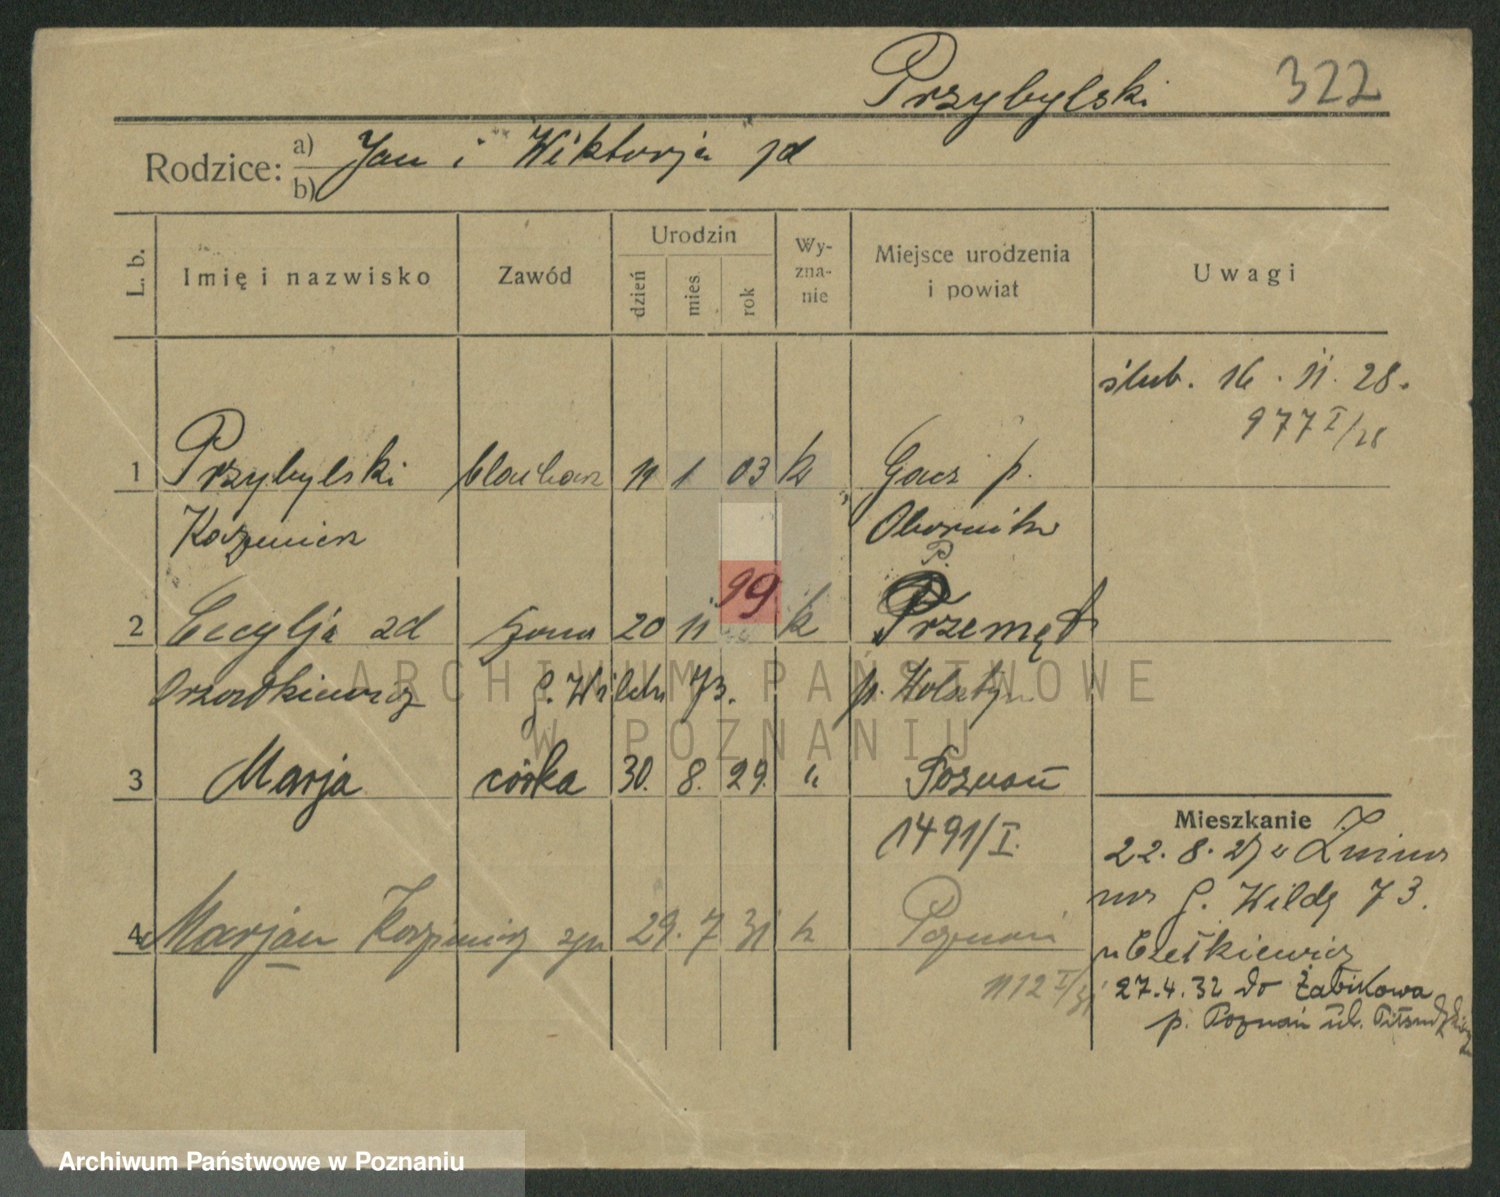 Przybylski 322
Rodzice: a) Jan i Wiktorja zd
b)
L. b. Imię i nazwisko Zawód Urodzin dzień mies rok Wy-zna-nie Miejsce urodzenia i powiat Uwagi
ślub. 16. 11. 28.
977 I/28
1 Przybylski blacharz 11 1 03 k Gacz p.
Kazimierz Oborniki
P.
2 Cecylja zd żona 20 11 99 k Przemęt
G. Wilda 73. p. Wolsztyn
3 Marja córka 30. 8. 29. " Poznań
Mieszkanie
1491/I. 22. 8. 29
G. Wildę 73.
4 Marjan Kazimierz syn 29. 7 31 k Poznań
1112 I/31
27.4.32 do Żabikowa
p. Poznań ul.
ARCHIWUM PAŃSTWOWE
W POZNANIU
Archiwum Państwowe w Poznaniu